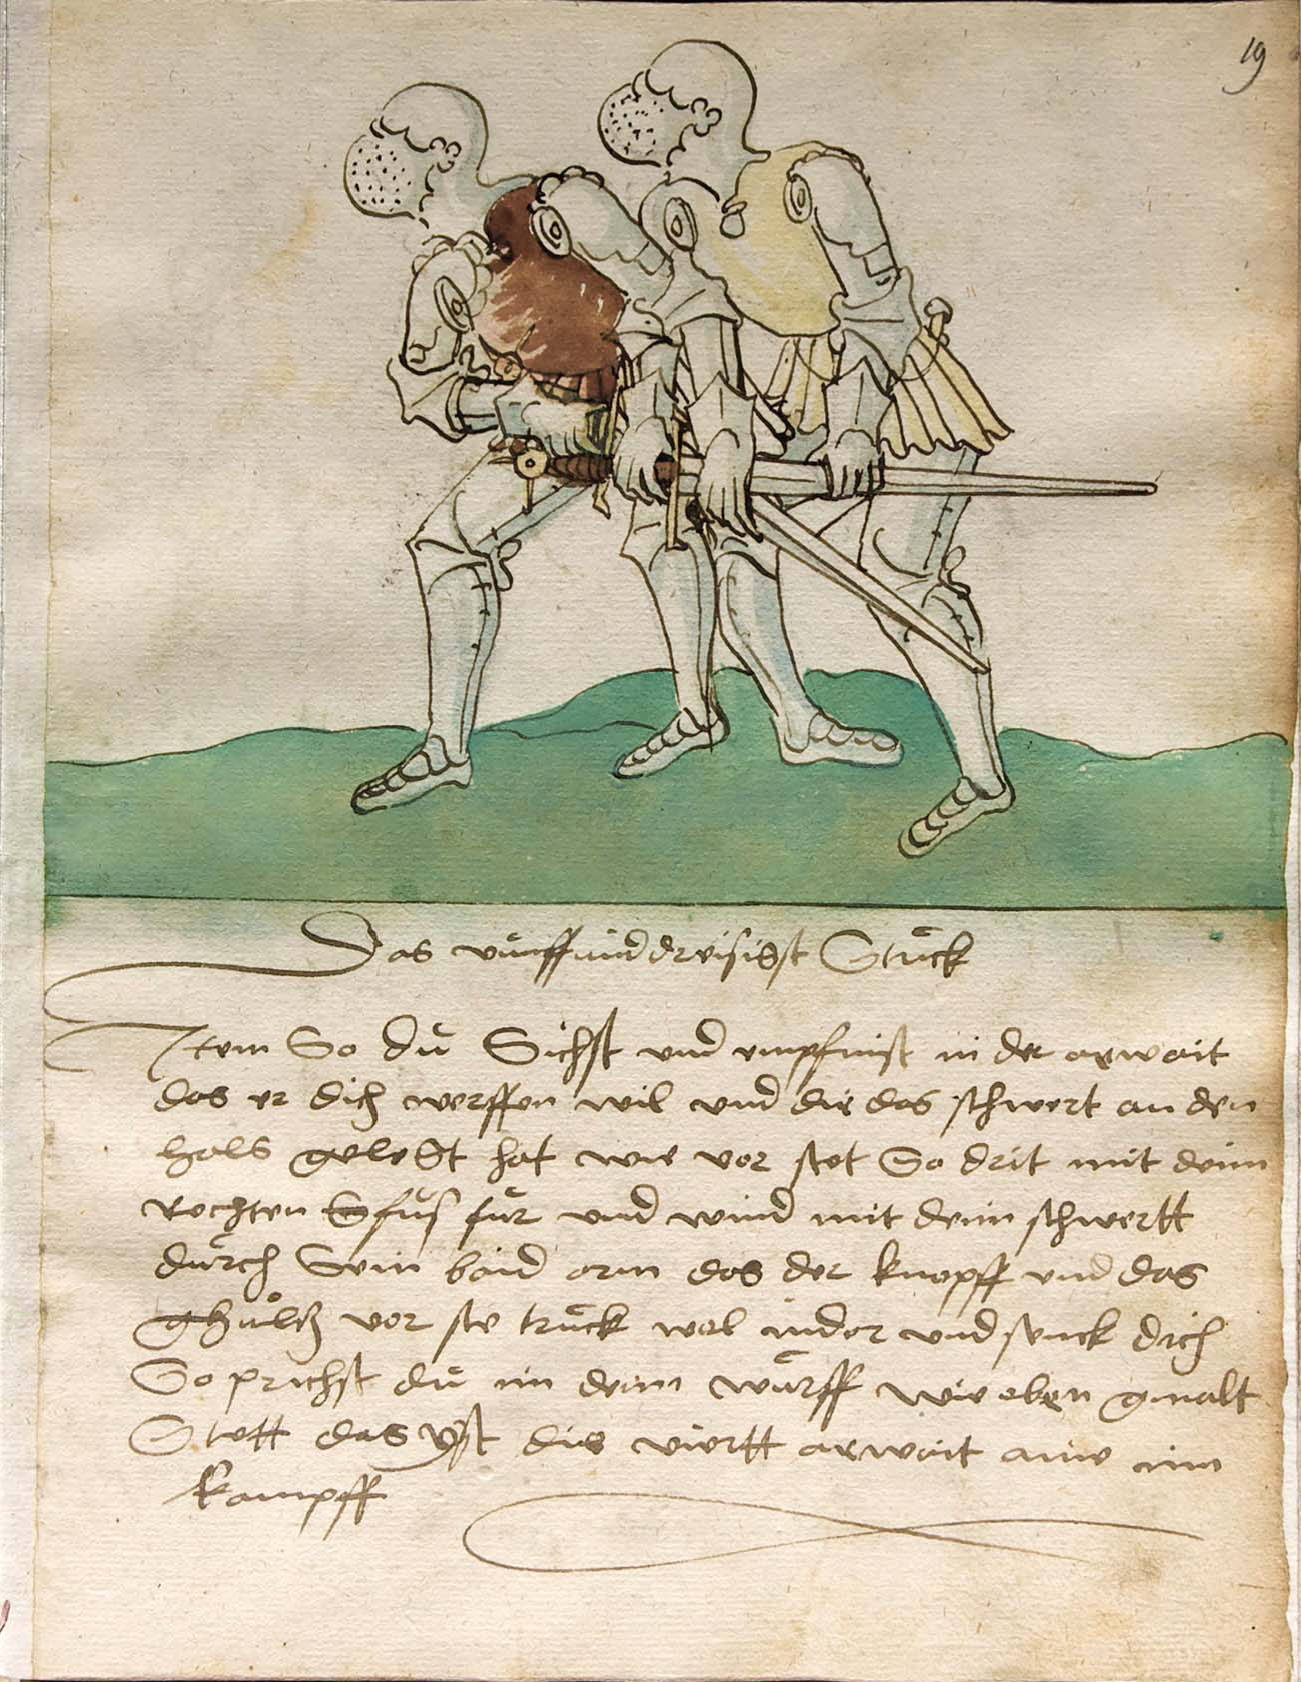 19
Das vünffunddreisigst Stuck
Item So dü Sichst und empfinst in der arwait
das er dich werffen wil und dir das schwert an den
hals gelegt hat wie vor stet So drit mit deim
Rechten fuß für und wind mit deim schwertt
dürch Sein baid arm das der knopff und das
ghültz vor ste trück wol nider und senck dich
So prichst dü im deim würff wie oben gmalt
Stett das yst die viertt arwait aine im
kampff